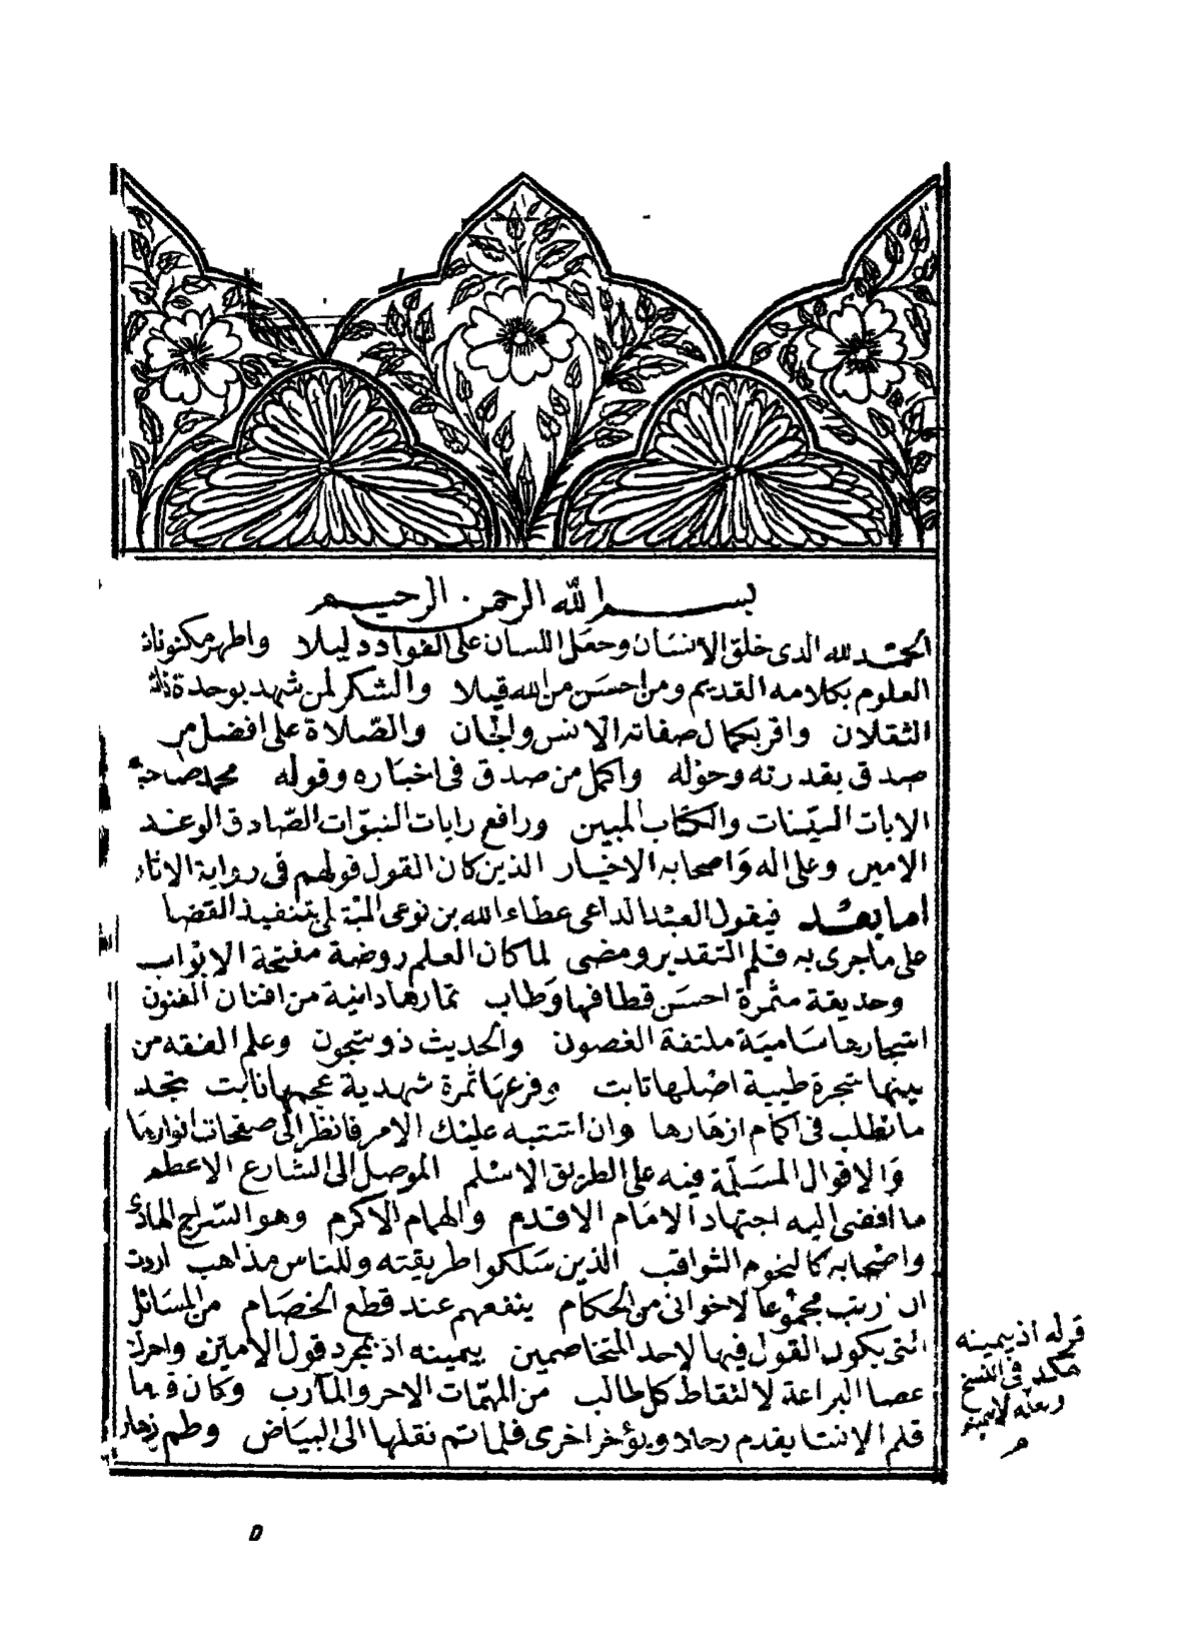 بسم الله الرحمن الرحيم
الحمد لله الذى خلق الانسان وجعل اللسان على الفؤاد دليلا واظهر مكنونات
العلوم بكلامه القديم ومن احسن من الله قيلا والشكر لمن شهد بوحدة ذاته
الثقلان واقر بكمال صفاته الانس والجان والصلاة على افضل من
صدق بقدرته وحوله واكمل من صدق فى اخباره وقوله محمد صاحب
الايات البينات والكتاب المبين ورافع رايات النبوات الصادق الوعد
الامين وعلى اله واصحابه الاخيار الذين كان القول قولهم فى رواية الاثار
اما بعد فيقول العبد الداعى عطاء الله بن نوعى المبتلى بتنفيذ القضا
على ماجرى به قلم التقدير ومضى لما كان العلم روضة مفتحة الابواب
وحديقة مثمرة احسن قطافها وطاب ثمارها دانية من افنان الفنون
اشجارها سامية ملتفة الغصون والحديث ذو شجون وعلم الفقه من
بينها شجرة طيبة اصلها ثابت وفرعها ثمرة شهدية عجمها نابت تجد
ما تطلب فى اكمام ازهارها وان اشتبه عليك الامر فانظر الى صفحات انوارها
والاقوال المسلمة فيه على الطريق الاسلم الموصل الى الشارع الاعظم
ما افضى اليه اجتهاد الامام الاقدم والهمام الاكرم وهو السراج الهادى
واصحابه كالنجوم الثواقب الذين سلكوا طريقته وللناس مذاهب اردت
ان ارتب مجموعا لاخوانى من الحكام ينفعهم عند قطع الخصام من المسائل
التى يكون القول فيها لاحد المتخاصمين بيمينه اذ بمجرد قول الامين واحرك
عصا البراعة لالتقاط كل طالب من المهمات الاخر والمآرب وكان
قلم الانشا يقدم رجلا ويؤخر اخرى فلما تم نقلها الى البياض وطم
قوله اذ بيمينه
هكذا فى النسخ
ولعله لا بيمينه
م
٥